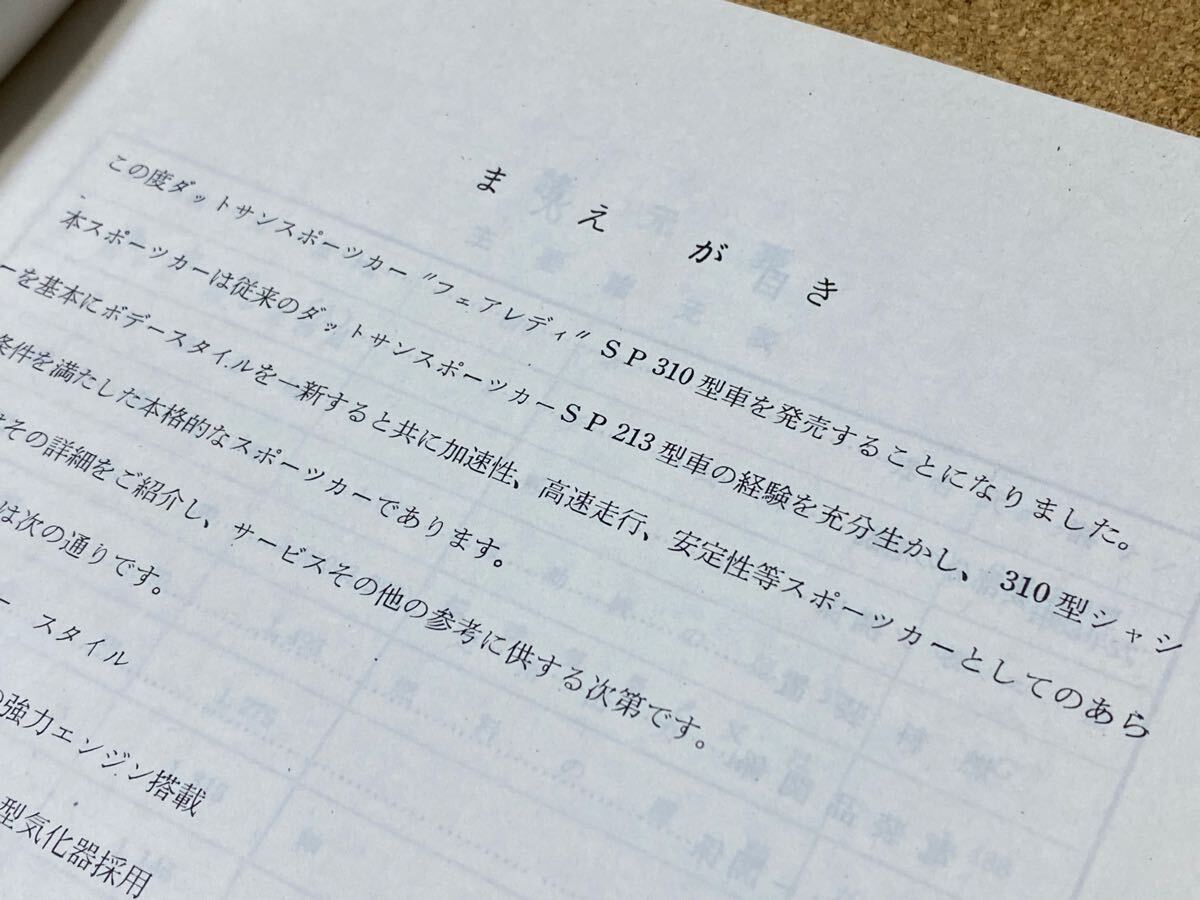 まえがき
この度ダットサンスポーツカー〝フェアレディ〟SP310型車を発売することになりました。
本スポーツカーは従来のダットサンスポーツカーSP213型車の経験を充分生かし、310型シャシ
ーを基本にボデースタイルを一新すると共に加速性、高速走行、安定性等スポーツカーとしてのあら
条件を満たした本格的なスポーツカーであります。
その詳細をご紹介し、サービスその他の参考に供する次第です。
は次の通りです。
ー スタイル
の強力エンジン搭載
型気化器採用